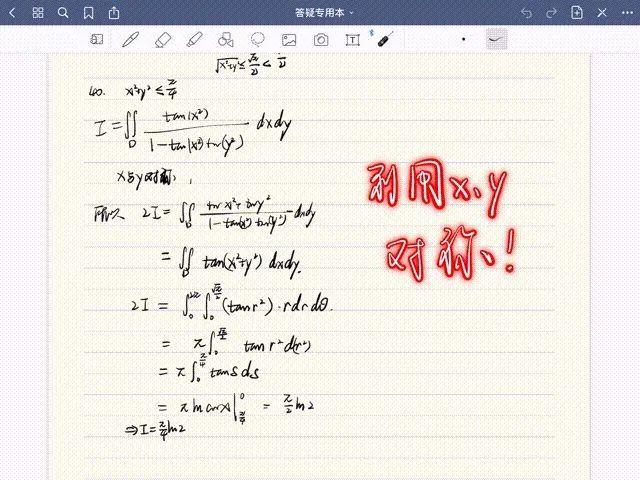 答疑专用本
√(x²+y²) ≤ √π/2 <
40. x²+y² ≤ π/4
I = ∬_D tan(x²) / (1-tan(x²)tan(y²)) dxdy
x与y对称,
所以 2I = ∬_D (tan x²+tan y²) / (1-tan(x²)tan(y²)) dxdy
= ∬_D tan(x²+y²) dxdy.
利用x、y
对称、!
2I = ∫₀^{2π} ∫₀^{√π/2} (tan r²)·r dr dθ.
= π∫₀^{√π/2} tan r² d(r²)
= π∫₀^{π/4} tan s ds
= π ln cos x |_{π/4}^0 = π/2 ln2
⇒ I = π/4 ln2